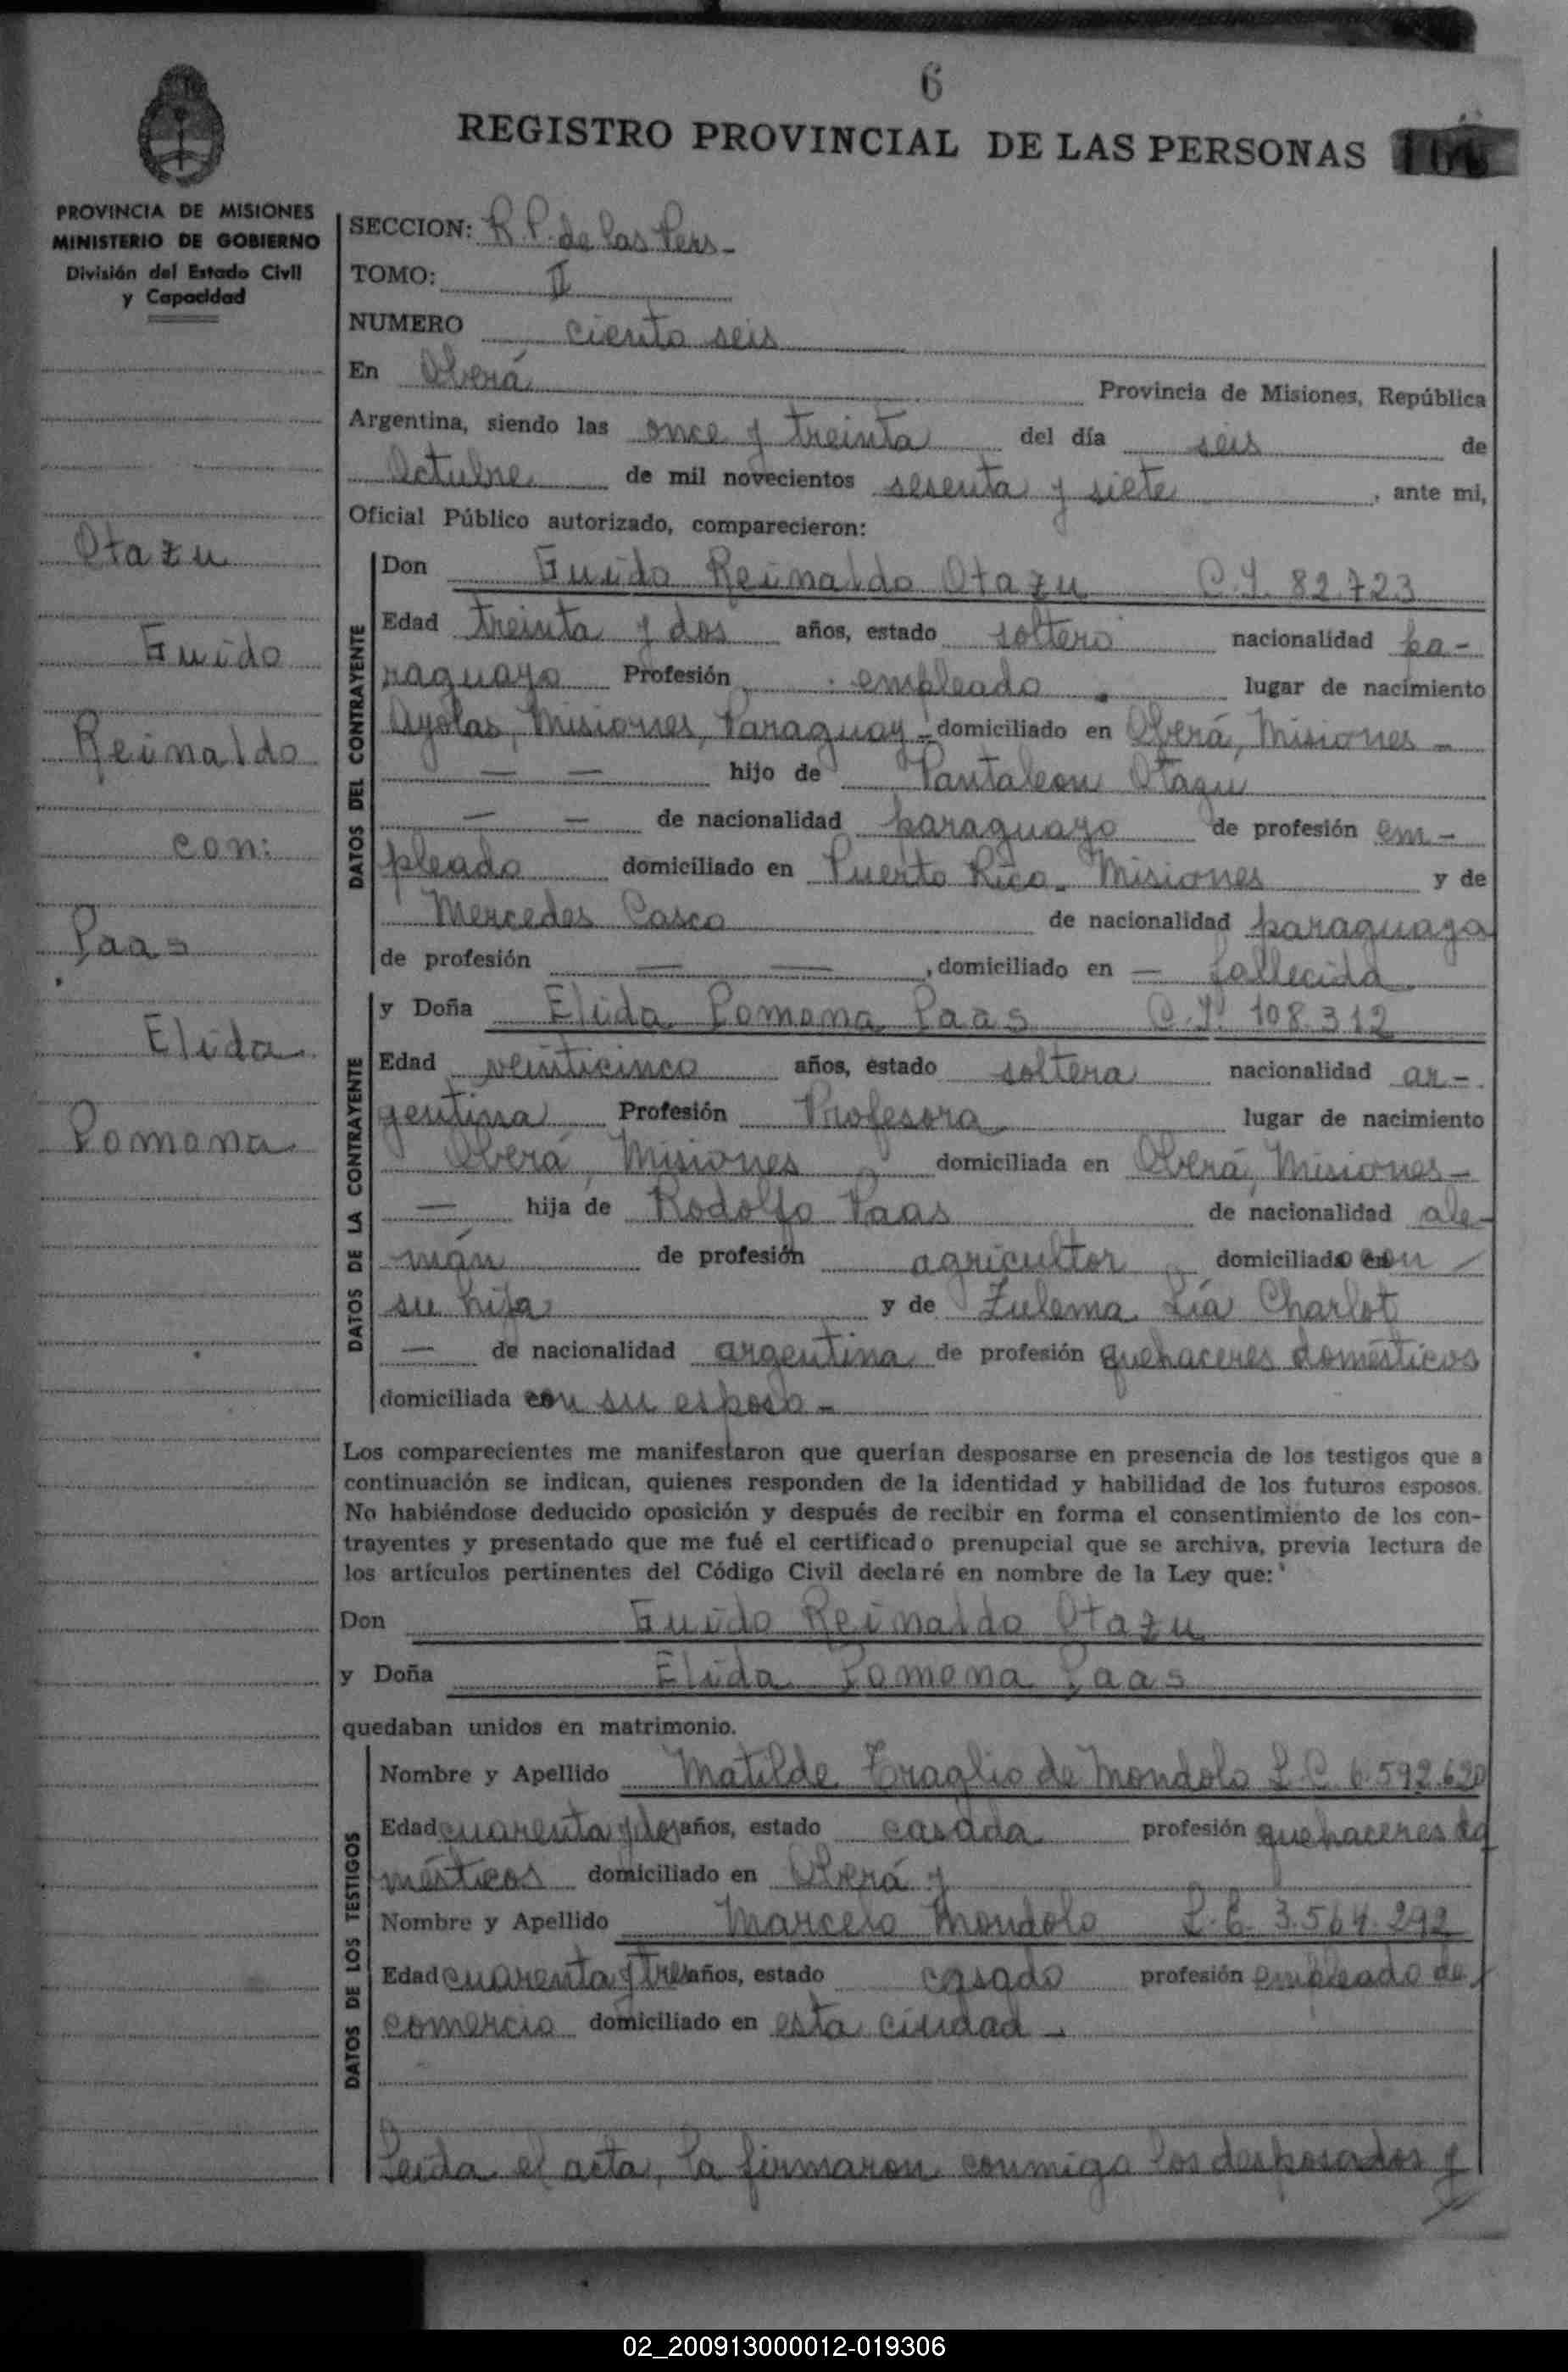 6
REGISTRO PROVINCIAL DE LAS PERSONAS
PROVINCIA DE MISIONES
MINISTERIO DE GOBIERNO
División del Estado Civil
y Capacidad
Otazu
Guido
Reinaldo
con:
Paas
Elida
Pomona
SECCION: R.P. de las Pers-
TOMO: II
NUMERO ciento seis
En Oberá Provincia de Misiones, República
Argentina, siendo las once y treinta del día seis de
Octubre de mil novecientos sesenta y siete, ante mi,
Oficial Público autorizado, comparecieron:
DATOS DEL CONTRAYENTE
Don Guido Reinaldo Otazu C.I. 82.723
Edad treinta y dos años, estado soltero nacionalidad pa-
raguayo Profesión empleado lugar de nacimiento
Ayolas, Misiones, Paraguay - domiciliado en Oberá, Misiones -
— — hijo de Pantaleon Otazu
— — de nacionalidad paraguayo de profesión em-
pleado domiciliado en Puerto Rico - Misiones y de
Mercedes Casco de nacionalidad paraguaya
de profesión — —, domiciliado en — fallecida
DATOS DE LA CONTRAYENTE
y Doña Elida Pomona Paas C.I. 108.312
Edad veinticinco años, estado soltera nacionalidad ar-
gentina Profesión Profesora lugar de nacimiento
Oberá, Misiones domiciliada en Oberá, Misiones -
— hija de Rodolfo Paas de nacionalidad ale-
mán de profesión agricultor domiciliado con
su hija y de Zulema Lía Charlot
— de nacionalidad argentina de profesión quehaceres domésticos
domiciliada con su esposo -
Los comparecientes me manifestaron que querían desposarse en presencia de los testigos que a
continuación se indican, quienes responden de la identidad y habilidad de los futuros esposos.
No habiéndose deducido oposición y después de recibir en forma el consentimiento de los con-
trayentes y presentado que me fué el certificado prenupcial que se archiva, previa lectura de
los artículos pertinentes del Código Civil declaré en nombre de la Ley que:
Don Guido Reinaldo Otazu
y Doña Elida Pomona Paas
quedaban unidos en matrimonio.
DATOS DE LOS TESTIGOS
Nombre y Apellido Matilde Traglio de Mondolo L.C. 6.592.620
Edad cuarenta y dos años, estado casada profesión quehaceres do
mésticos domiciliado en Oberá y
Nombre y Apellido Marcelo Mondolo L.E. 3.564.292
Edad cuarenta y tres años, estado casado profesión empleado de
comercio domiciliado en esta ciudad -
Leida el acta, la firmaron conmigo los desposados y
02_200913000012-019306